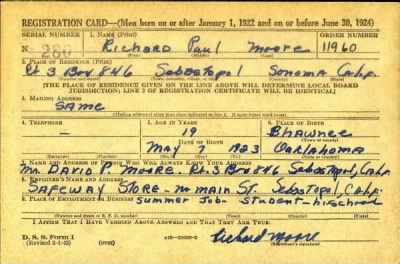 REGISTRATION CARD—(Men born on or after January 1, 1922 and on or before June 30, 1924)
SERIAL NUMBER 1. NAME (Print) ORDER NUMBER
N 280 Richard Paul Moore 11960
2. PLACE OF RESIDENCE (Print)
Rt. 3 Box 846 Sebastopol Sonoma Calif.
[THE PLACE OF RESIDENCE GIVEN ON THE LINE ABOVE WILL DETERMINE LOCAL BOARD
JURISDICTION; LINE 2 OF REGISTRATION CERTIFICATE WILL BE IDENTICAL]
3. MAILING ADDRESS
SAME
4. TELEPHONE 5. AGE IN YEARS 6. PLACE OF BIRTH
— 19 Shawnee
DATE OF BIRTH
MAY 7 1923 Oaklahoma
7. NAME AND ADDRESS OF PERSON WHO WILL ALWAYS KNOW YOUR ADDRESS
Mr. DAVID P. MOORE. Rt. 3 Box 846 Sebastopol, Calif.
8. EMPLOYER'S NAME AND ADDRESS
SAFEWAY STORE - N. main St. Sebastopol, Calif.
9. PLACE OF EMPLOYMENT OR BUSINESS
summer Job - student - hi.school
I AFFIRM THAT I HAVE VERIFIED ABOVE ANSWERS AND THAT THEY ARE TRUE.
D. S. S. Form 1
(over)
Richard Moore
(Registrant's signature)